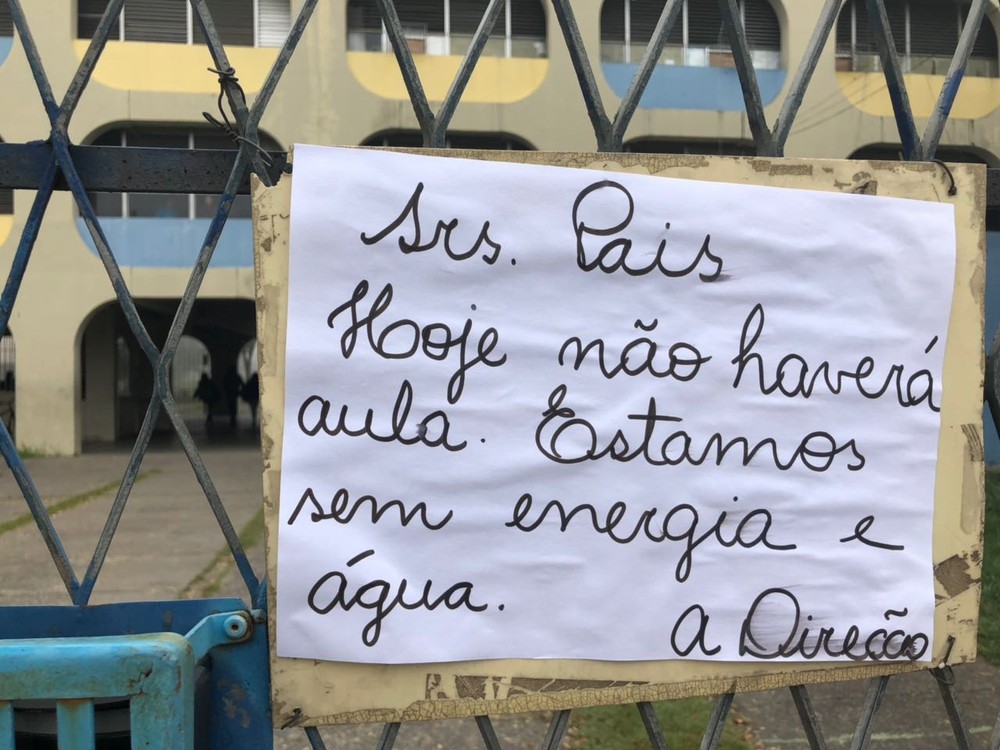 Srs. Pais
Hoje não haverá
aula. Estamos
sem energia e
água.
A Direção